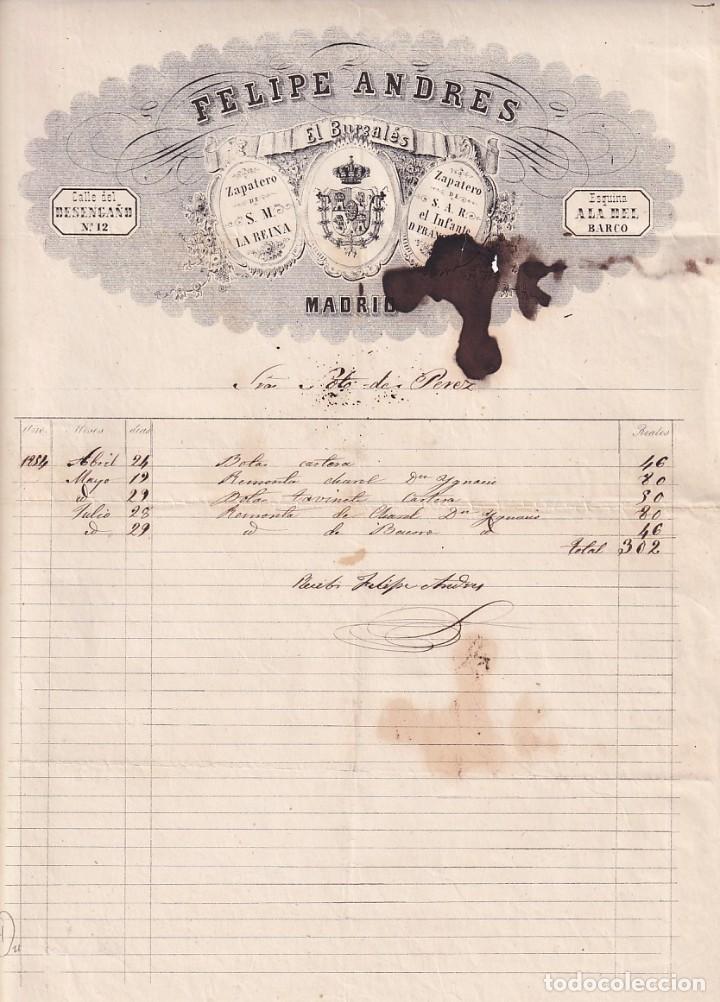 FELIPE ANDRES
El Burgalés
Calle del
DESENGAÑO
Nº. 12
Zapatero
DE
S. M.
LA REINA
Zapatero
DE
S. A. R.
el Infante
D FRAN
Esquina
A LA DEL
BARCO
MADRID
de Perez
Meses dias Reales
1854 Abril 24 Botas cartera 46
Mayo 19 Remonta charol Dn Ygnacio 80
id 29 Botas Cartera 50
Julio 28 Remonta de Charol Dn Ygnacio 80
id 29 id de Becerro id 46
total 302
Recibi Felipe Andres
todocoleccion.net